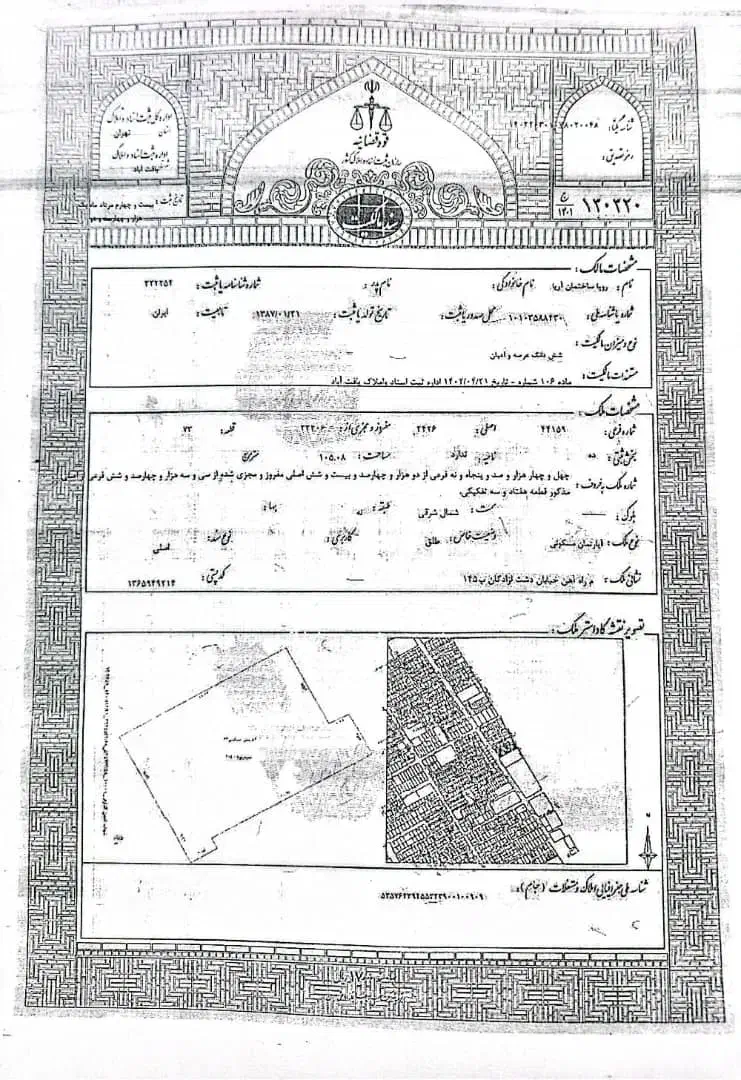 اداره کل ثبت اسناد و املاک
استان تهران
اداره ثبت اسناد و املاک
یافت آباد
تاریخ ثبت:
بیست و چهارم مرداد ماه
هزار و چهارصد و دو
قوه قضائیه
سازمان ثبت اسناد و املاک کشور
سند مالکیت
شناسه یکتا:
رمز تصدیق:
۱۲۰۲۲۰
ج
۱۴۰۱
مشخصات مالک:
نام: رویا ساختمان آریا نام خانوادگی: نام پدر: شماره شناسنامه یا ثبت: ۳۲۲۲۵۴
شماره یا شناسه ملی: ۱۰۱۰۳۵۸۸۴۳۰ محل صدور یا ثبت: تاریخ تولد یا ثبت: ۱۳۸۷/۰۱/۲۱ تابعیت: ایران
نوع و میزان مالکیت:
شش دانگ عرصه و اعیان
مستندات مالکیت: ماده ۱۰۶ شماره - تاریخ ۱۴۰۲/۰۴/۲۱ اداره ثبت اسناد و املاک یافت آباد
مشخصات ملک:
شماره فرعی: ۴۴۱۵۹ اصلی: ۲۴۲۶ مفروز و مجزی از: قطعه: ۷۳
بخش ثبتی: ناحیه: ندارد مساحت: ۱۰۵.۰۸ مترمربع
شماره ملک به حروف: چهل و چهار هزار و صد و پنجاه و نه فرعی از دو هزار و چهارصد و بیست و شش اصلی مفروز و مجزی شده از سی و سه هزار و چهارصد و شش فرعی از اصلی
مذکور قطعه هفتاد و سه تفکیکی.
بلوک: سمت: شمال شرقی طبقه: بها:
نوع ملک: آپارتمان مسکونی وضعیت خاص: طلق کاربری: نوع سند: اصلی
نشانی ملک: م راه آهن خیابان دشت آزادگان پ ۱۴۵ کدپستی: ۱۳۶۵۹۴۹۲۱۴
تصویر نقشه کاداستر ملک:
شناسه ملی جغرافیایی املاک و مستغلات (جام):